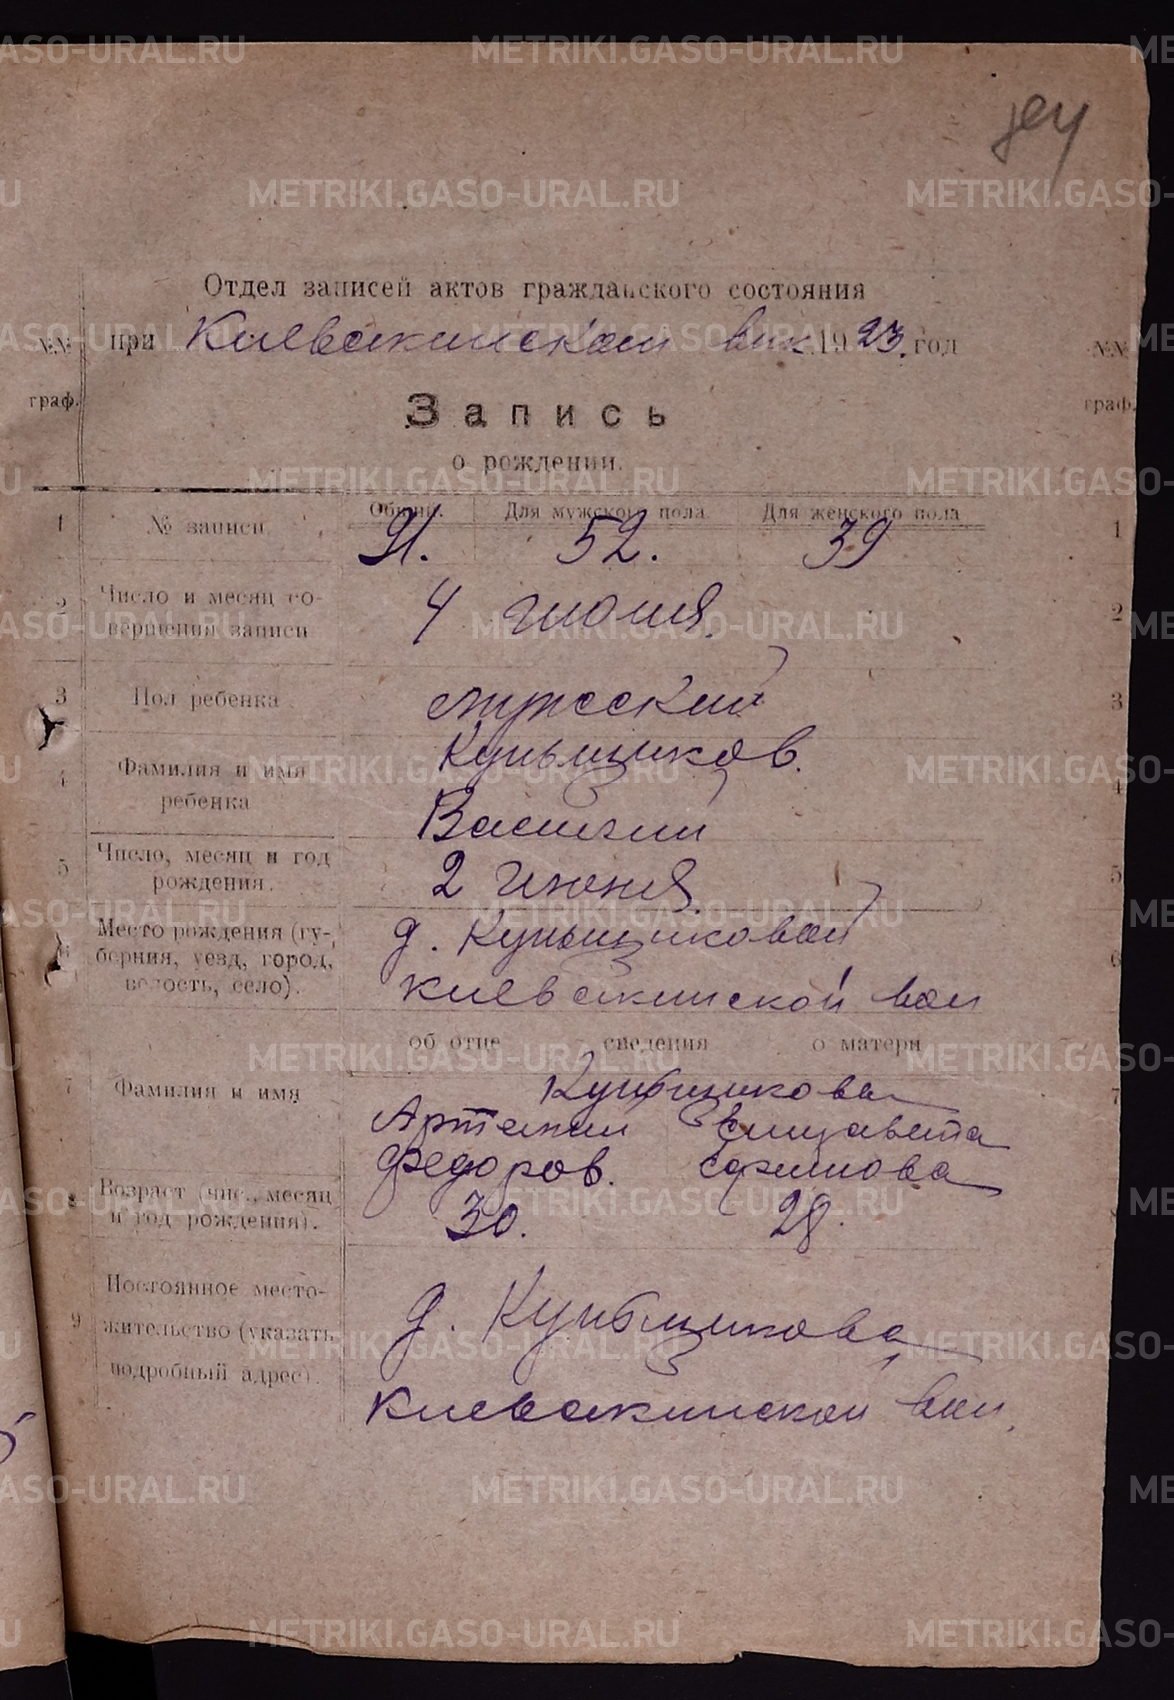 Отдел записей актов гражданского состояния
при Киевакинском вик 1923 год
№№ граф.
№№ граф.
Запись
о рождении.
Общий. Для мужского пола. Для женского пола
1 № записи 91. 52. 39 1
2 Число и месяц со-
вершения записи 4 июня. 2
3 Пол ребенка мужеский 3
4 Фамилия и имя
ребенка Кульщиков. 4
Василий
5 Число, месяц и год
рождения. 2 июня. 5
6 Место рождения (гу-
берния, уезд, город,
волость, село). д. Кульщиковой 6
Киевакинской вол
об отце сведения о матери
7 Фамилия и имя Кульщикова 7
Артемий Елизавета
Федоров. Ефимова
8 Возраст (чис., месяц
и год рождения). 30. 28.
9 Постоянное место-
жительство (указать
подробный адрес). д. Кульщикова
Киевакинской вол.
METRIKI.GASO-URAL.RU